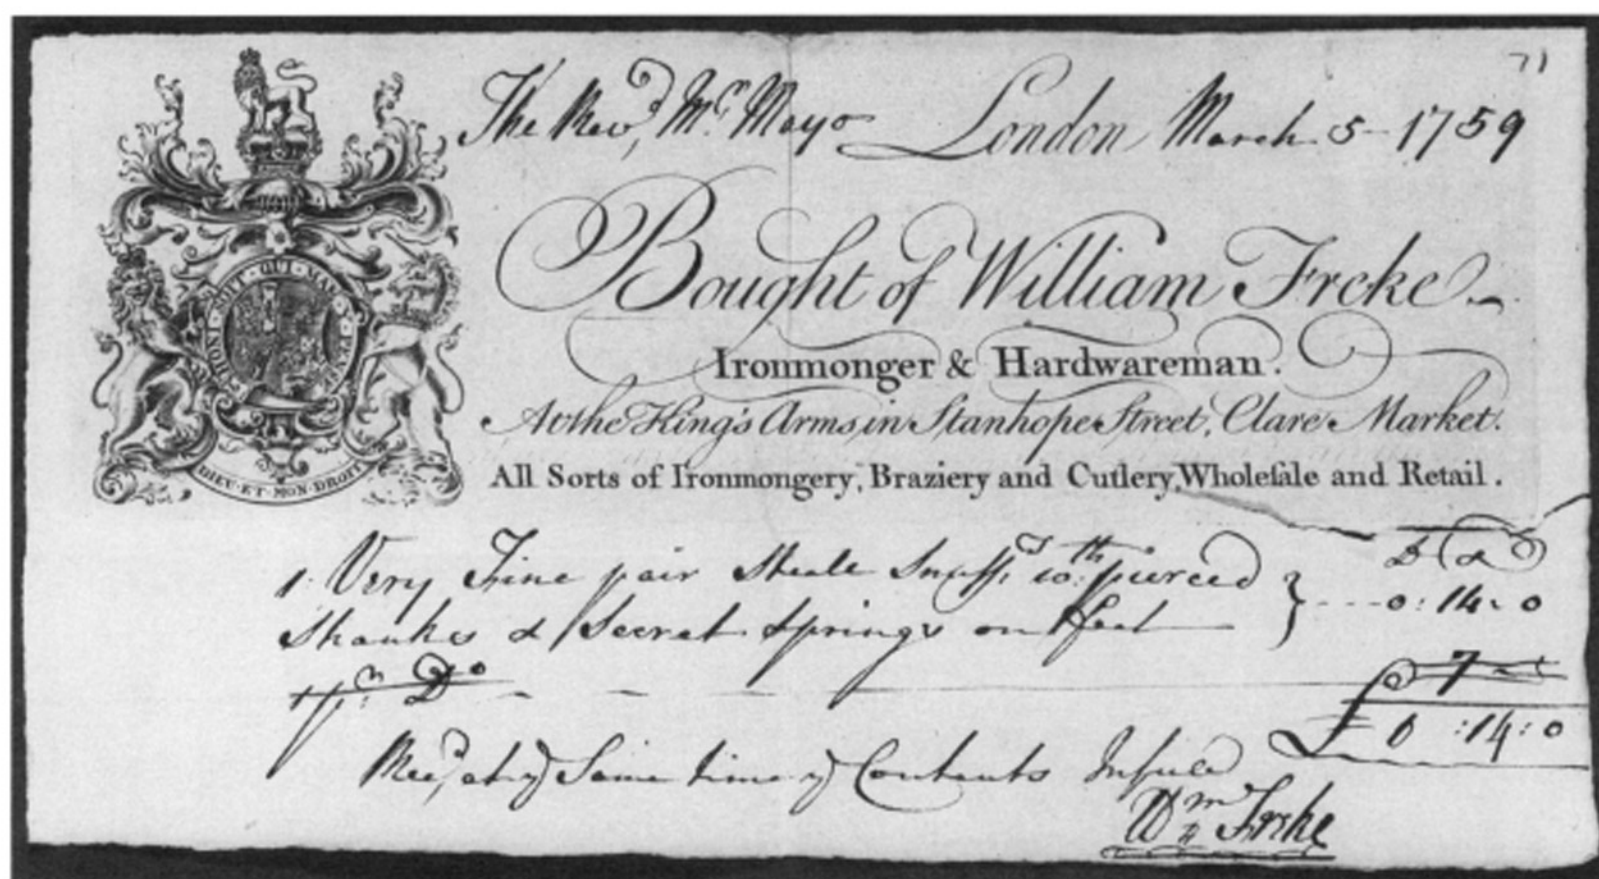 71
The Revd, Mr. Mayo London March 5 - 1759
Bought of William Freke
Ironmonger & Hardwareman.
At the King's Arms, in Stanhope Street, Clare Market.
All Sorts of Ironmongery, Braziery and Cutlery, Wholeſale and Retail.
HONI · SOIT · QUI · MAL · Y · PENSE
DIEU · ET · MON · DROIT
1 Very Fine pair Steele Snuffs. wth. pierced
Shanks & Secret Springs on feet } 0 : 14 - 0
1 pr. Do 7 -
£ 0 : 14 : 0
Recd, at ye Same time ye Contents In full
Wm Freke